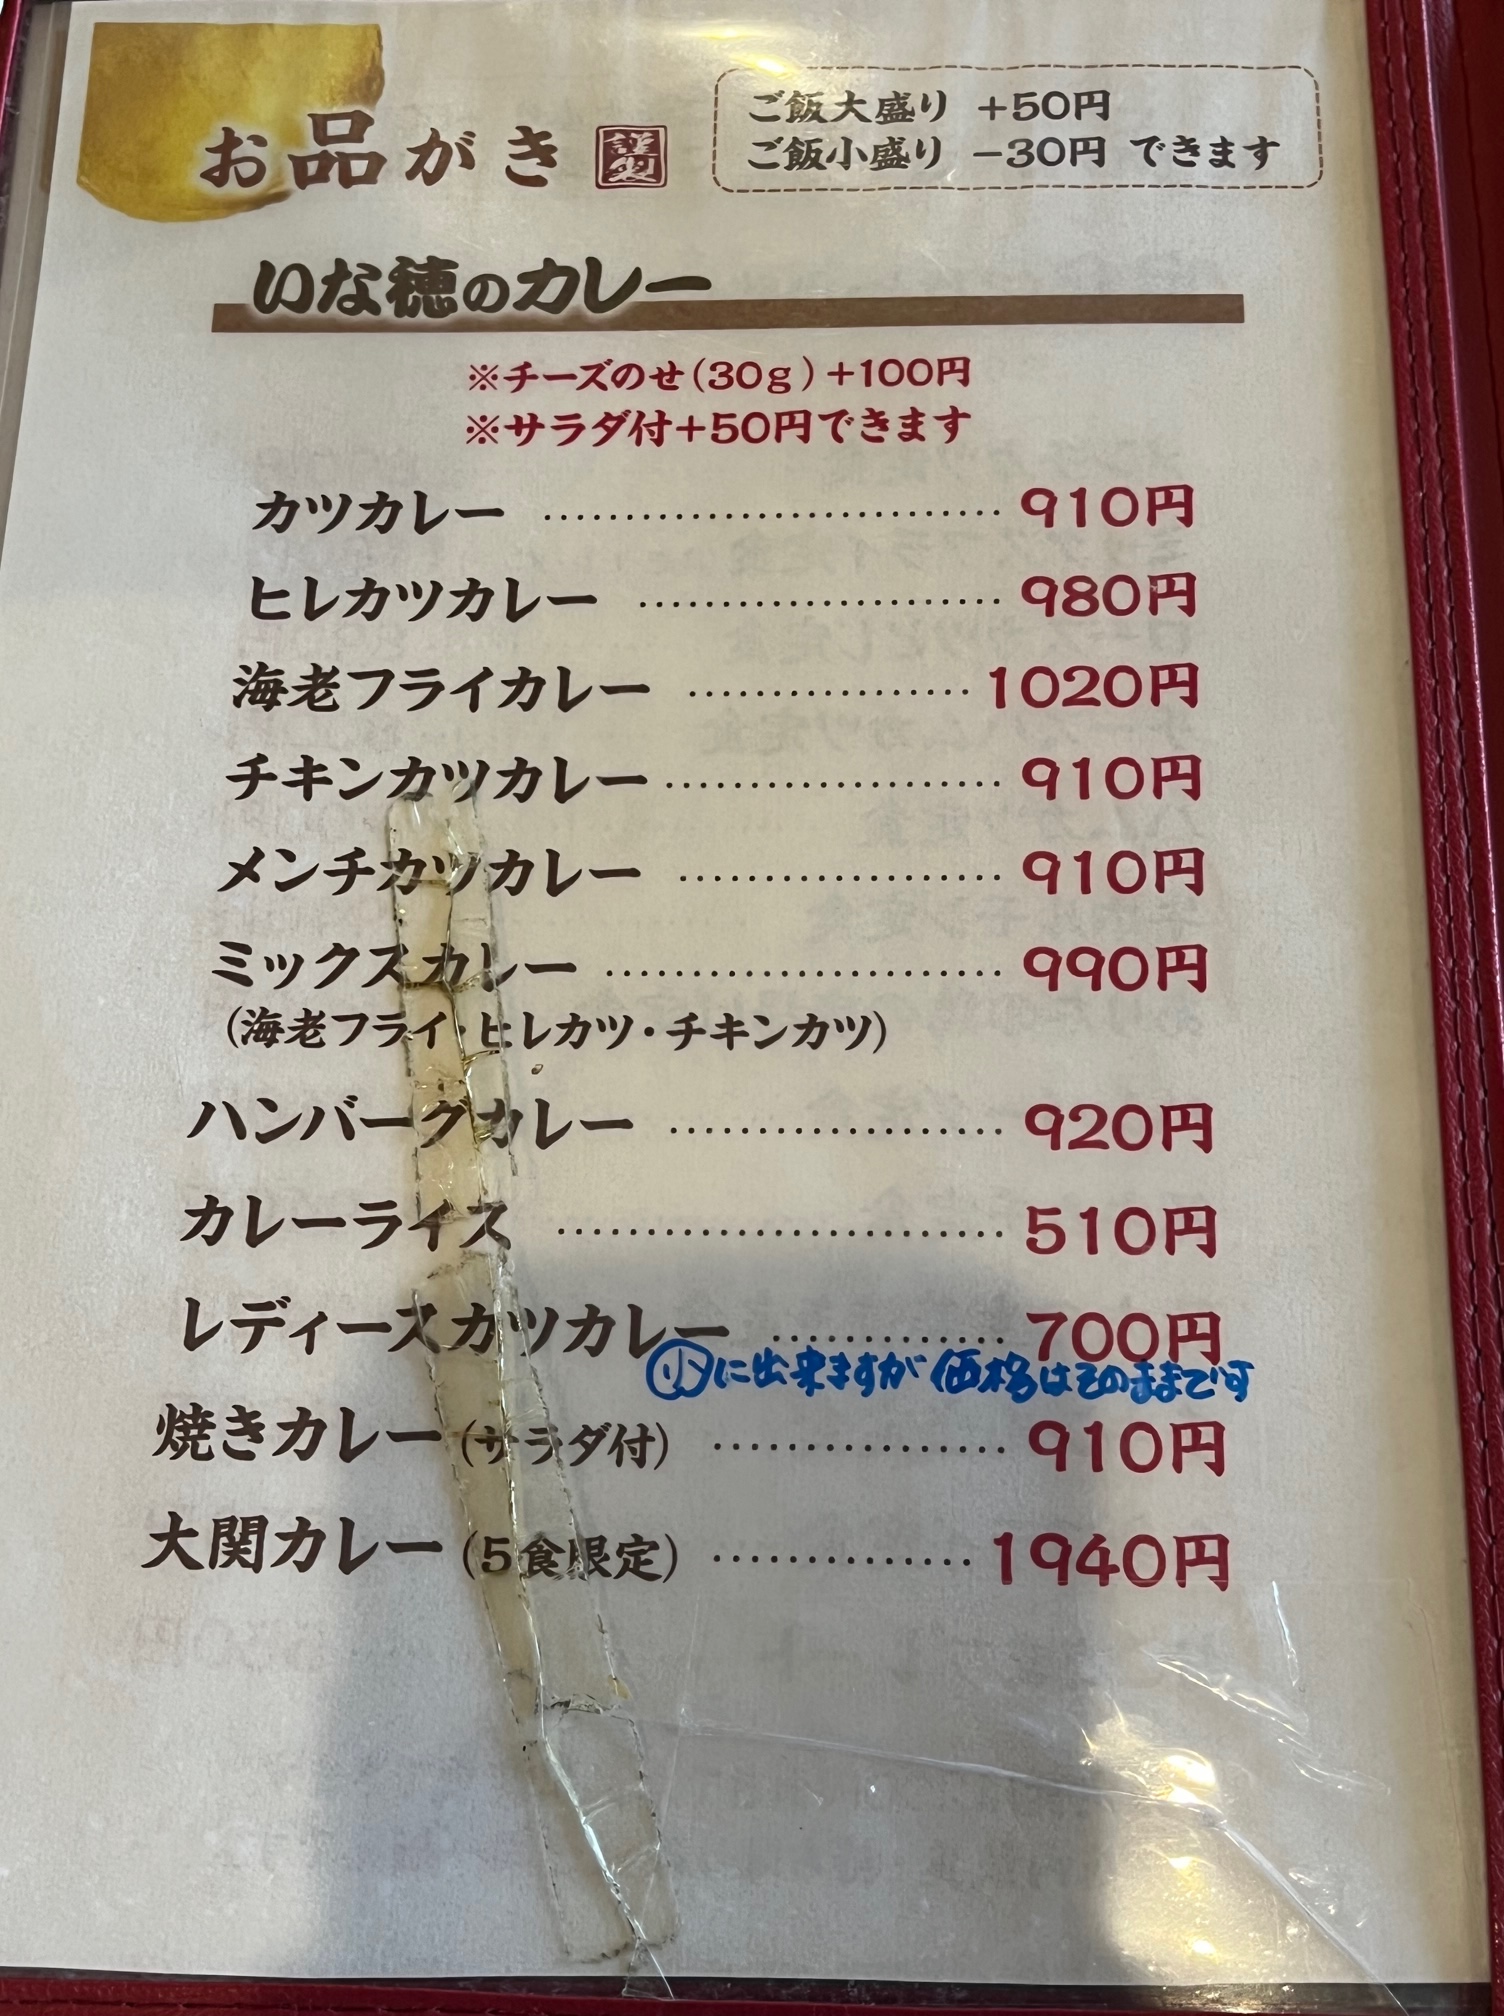 お品がき 謹製
ご飯大盛り +50円
ご飯小盛り −30円 できます
いな穂のカレー
※チーズのせ(30g)+100円
※サラダ付+50円できます
カツカレー ………………………… 910円
ヒレカツカレー …………………… 980円
海老フライカレー ……………… 1020円
チキンカツカレー ………………… 910円
メンチカツカレー ………………… 910円
ミックスカレー …………………… 990円
(海老フライ・ヒレカツ・チキンカツ)
ハンバーグカレー ………………… 920円
カレーライス ……………………… 510円
レディースカツカレー …………… 700円
小に出来ますが 価格はそのままです
焼きカレー(サラダ付) …………… 910円
大関カレー(5食限定) ………… 1940円